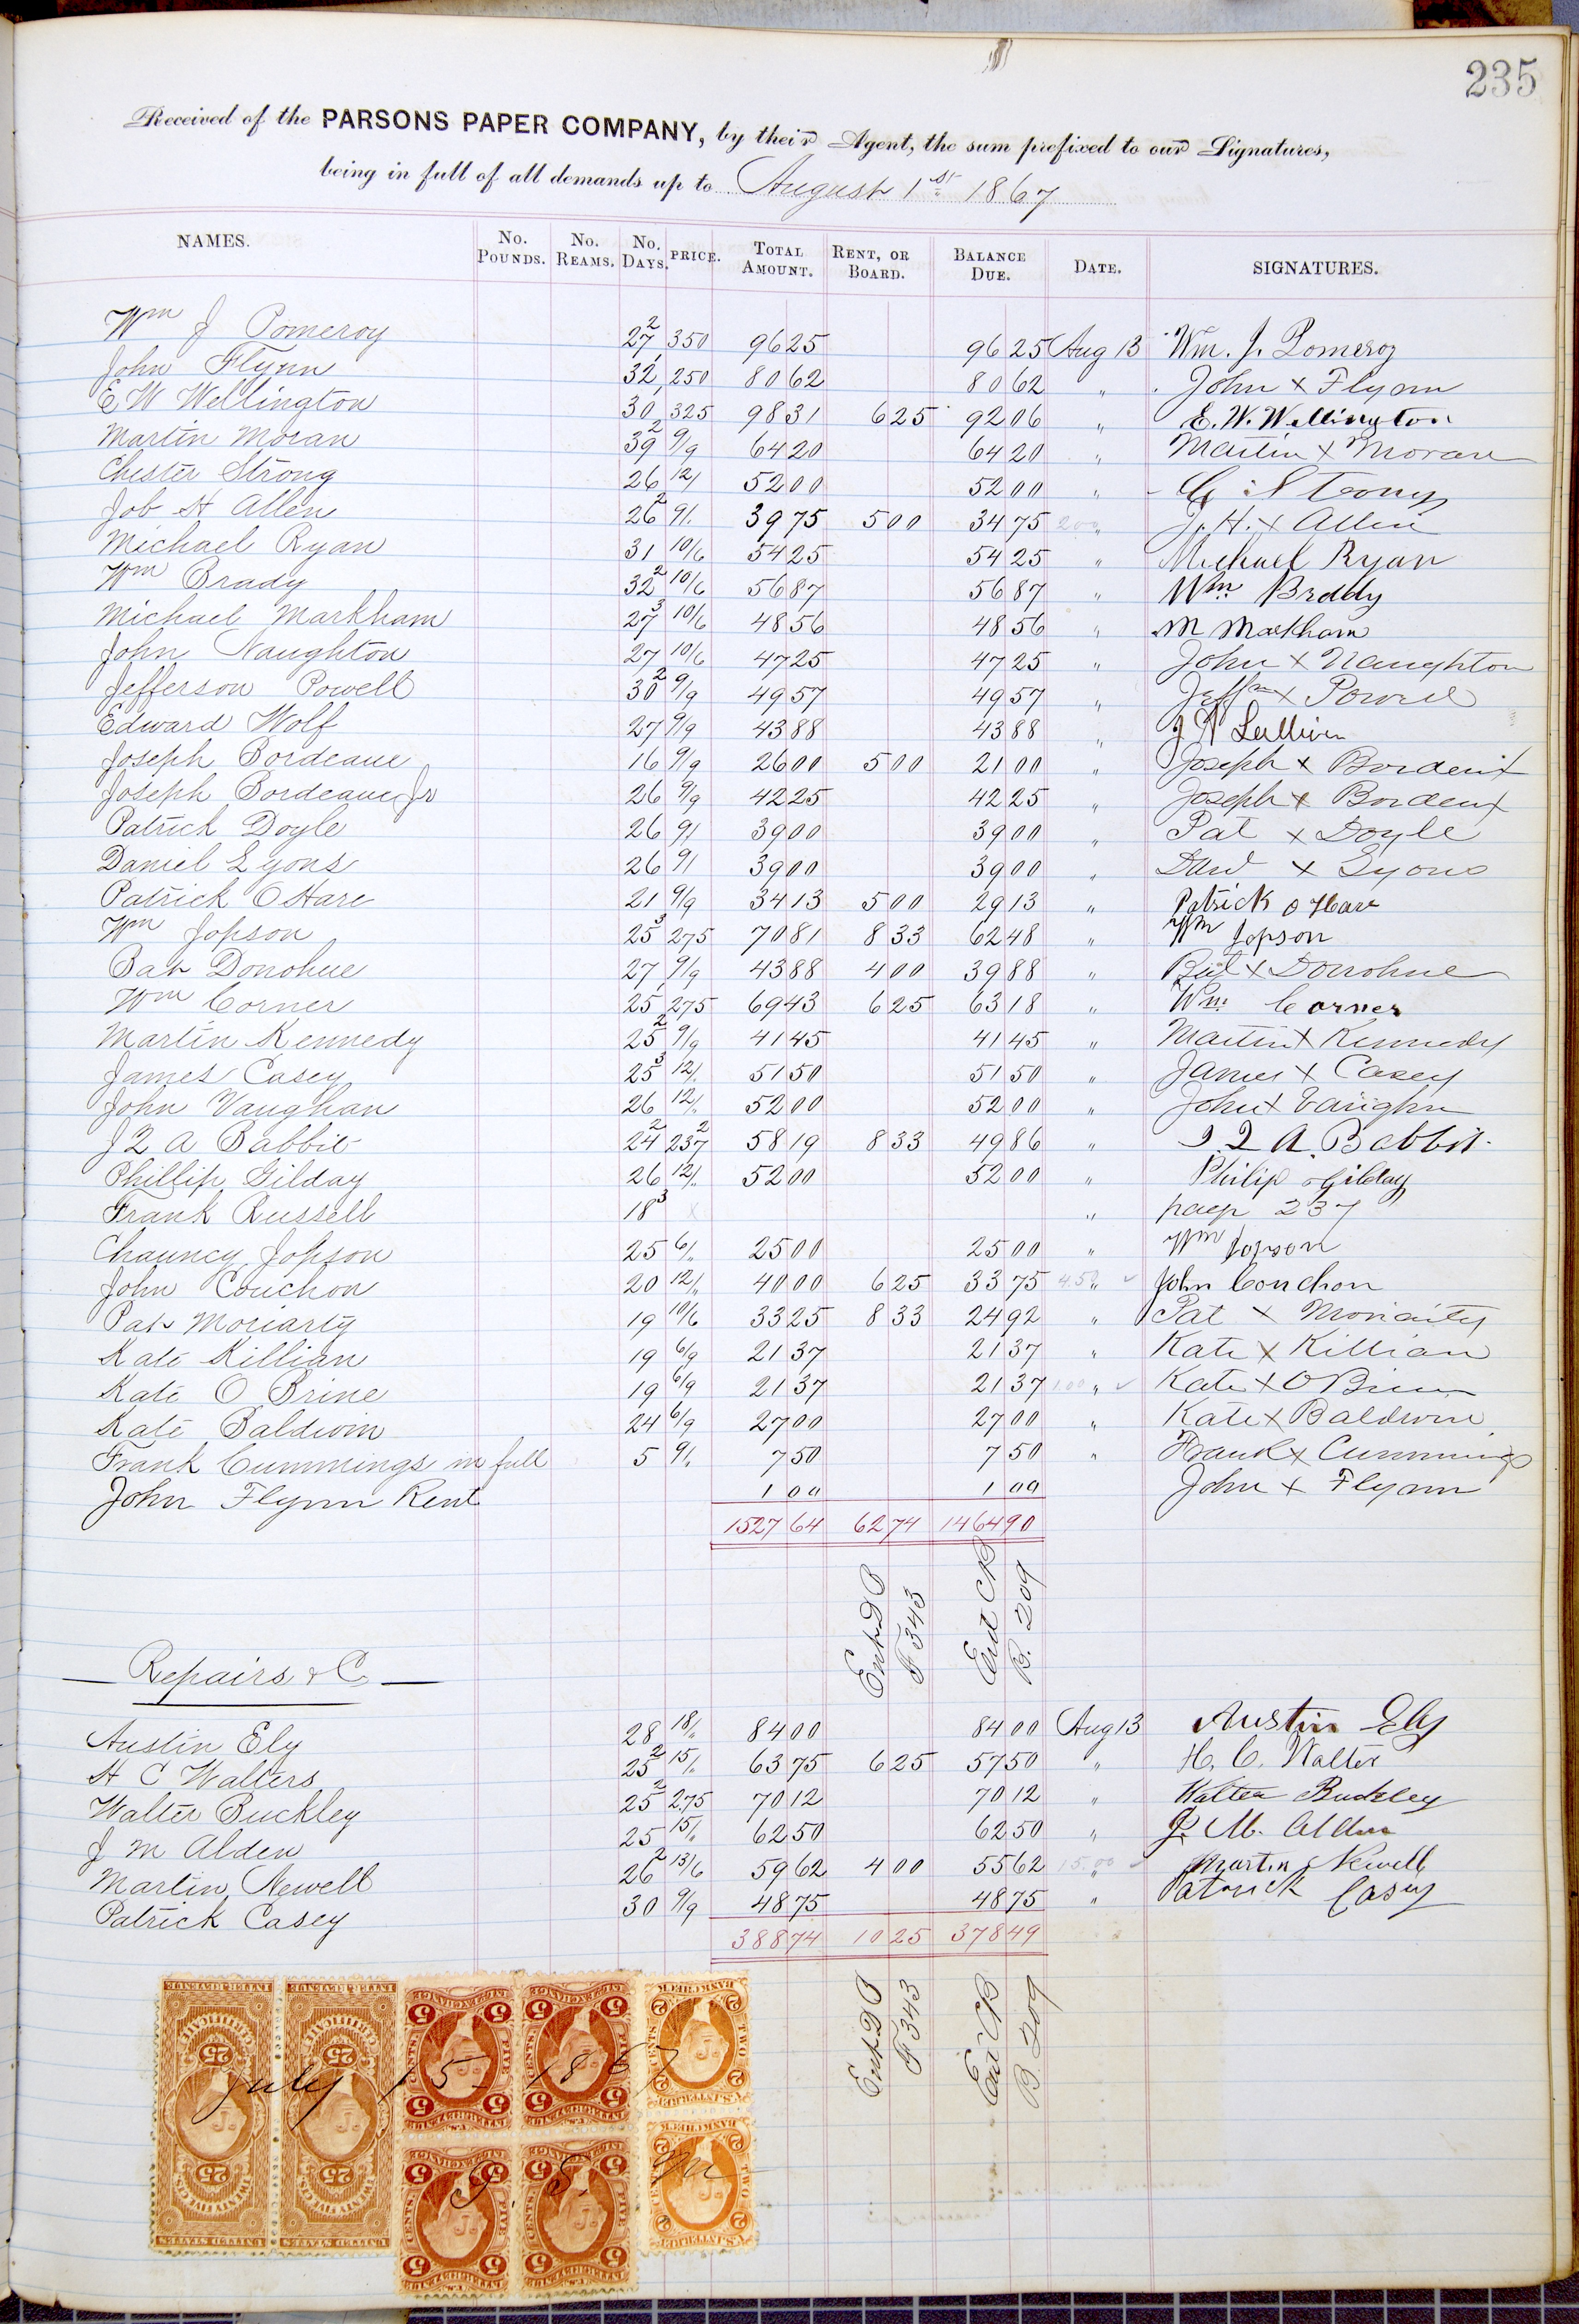 235
Received of the PARSONS PAPER COMPANY, by their Agent, the sum prefixed to our Signatures,
being in full of all demands up to August 1st 1867
NAMES. No. Pounds. No. Reams. No. Days. PRICE. Total Amount. Rent, or Board. Balance Due. Date. SIGNATURES.
Wm J Pomeroy 27 2 350 96 25 96 25 Aug 13 Wm. J. Pomeroy
John Flynn 32 1 250 80 62 80 62 " John x Flynn
E W Wellington 30 1 325 98 31 6 25 92 06 " E. W. Wellington
Martin Moran 39 2 9/9 64 20 64 20 " Martin x Moran
Chester Strong 26 12/ 52 00 52 00 " C. Strong
Job H Allen 26 2 9/. 39 75 5 00 34 75 200 " J. H. x Allen
Michael Ryan 31 10/6 54 25 54 25 " Michael Ryan
Wm Brady 32 2 10/6 56 87 56 87 " Wm Brddy
Michael Markham 27 3 10/6 48 56 48 56 " M Markham
John Naughton 27 10/6 47 25 47 25 " John x Naughton
Jefferson Powell 30 2 9/9 49 57 49 57 " Jeffsn x Powell
Edward Wolf 27 9/9 43 88 43 88 " J N Sullivin
Joseph Bordeaue 16 9/9 26 00 5 00 21 00 " Joseph x Bordeux
Joseph Bordeaue Jr 26 9/9 42 25 42 25 " Joseph x Bordeux
Patrick Doyle 26 9/ 39 00 39 00 " Pat x Doyle
Daniel Lyons 26 9/ 39 00 39 00 " Danl x Lyons
Patrick O Hare 21 9/9 34 13 5 00 29 13 " Patrick O Hare
Wm Jopson 25 3 275 70 81 8 33 62 48 " Wm Jopson
Bat Donohue 27 9/9 43 88 4 00 39 88 " Bat x Donohue
Wm Corner 25 1 275 69 43 6 25 63 18 " Wm. Corner
Martin Kennedy 25 2 9/9 41 45 41 45 " Martin x Kennedy
James Casey 25 3 12/. 51 50 51 50 " James x Casey
John Vaughan 26 12/. 52 00 52 00 " John x Vaughn
J Q A Babbit 24 2 237 2 58 19 8 33 49 86 " J. Q. A. Babbit
Phillip Gilday 26 12/. 52 00 52 00 " Philip Gilday
Frank Russell 18 3 x " page 237
Chauncy Jopson 25 6/. 25 00 25 00 " Wm Jopson
John Couchon 20 12/. 40 00 6 25 33 75 4.50 " ✓ John Conchon
Pat Moriarty 19 10/6 33 25 8 33 24 92 " Pat x Moriarty
Kate Killian 19 6/9 21 37 21 37 " Kate x Killian
Kate O Brine 19 6/9 21 37 21 37 1.00 " ✓ Kate x O Brien
Kate Baldwin 24 6/9 27 00 27 00 " Kate x Baldwin
Frank Cummings in full 5 9/. 7 50 7 50 " Frank x Cummings
John Flynn Rent 1 00 1 00 John x Flynn
1527 64 62 74 1464 90
Ent D B F 343
Ent C B B. 209
Repairs & C
Austin Ely 28 18/. 84 00 84 00 Aug 13 Austin Ely
H C Walters 25 2 15/. 63 75 6 25 57 50 " H. C. Walter
Walter Buckley 25 2 2.75 70 12 70 12 " Walter Buckley
J M Alden 25 15/. 62 50 62 50 " J. M. Alden
Martin Newell 26 2 13/6 59 62 4 00 55 62 15.00 " ✓ Martin Newell
Patrick Casey 30 9/9 48 75 48 75 " Patrick Casey
388 74 10 25 378 49
Ent D B F 343
Ent C B B. 209
July 15 1867
J. S. M
INTER. REVENUE
25
TWENTY FIVE CENTS
UNITED STATES
INTER. REVENUE
25
TWENTY FIVE CENTS
UNITED STATES
5
FIVE CENTS
5
FIVE CENTS
5
FIVE CENTS
5
FIVE CENTS
BANK CHECK
2
TWO CENTS
BANK CHECK
2
TWO CENTS